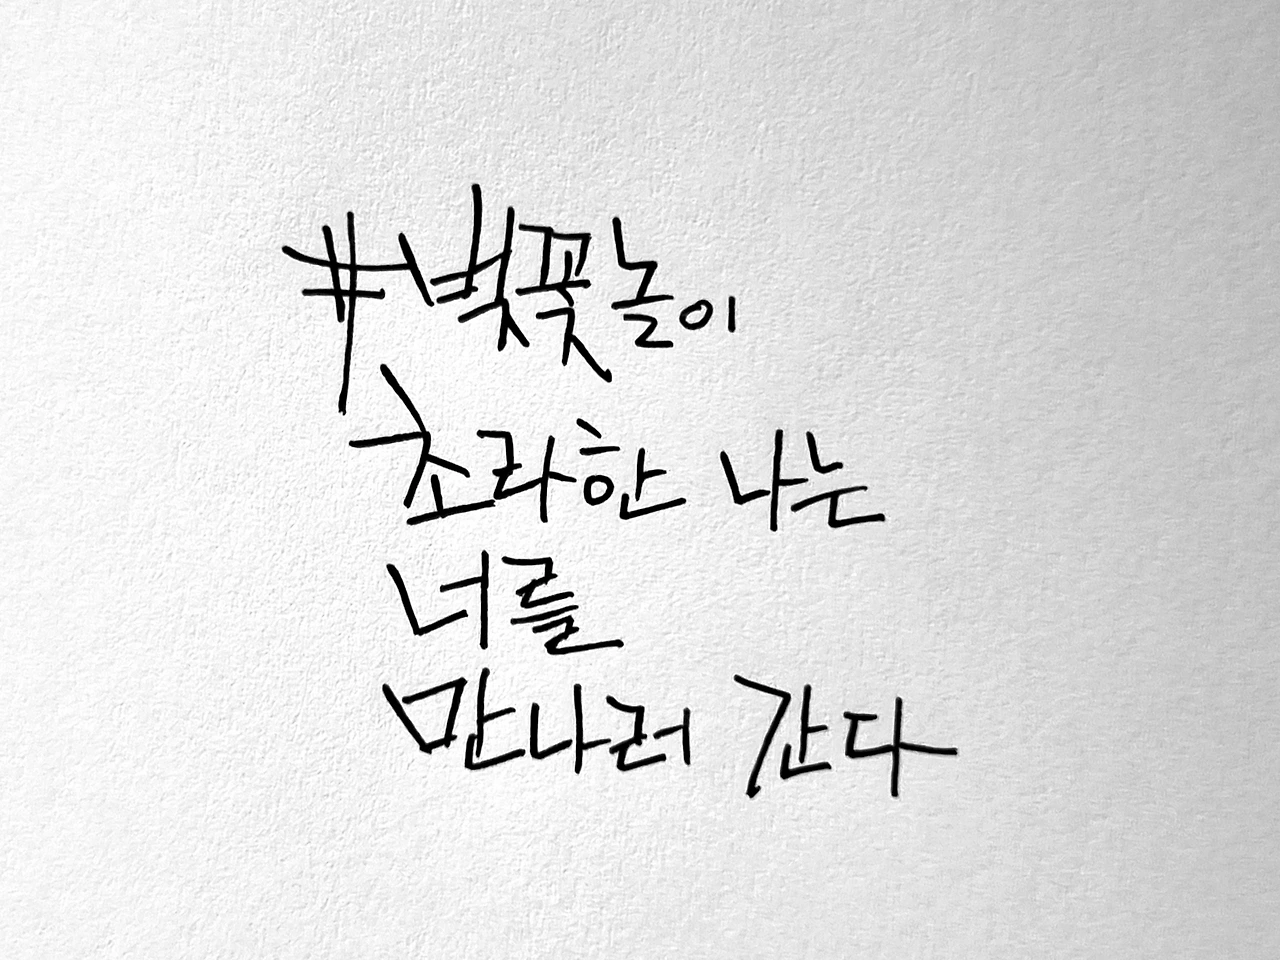 #벚꽃놀이
초라한 나는
너를
만나러 간다